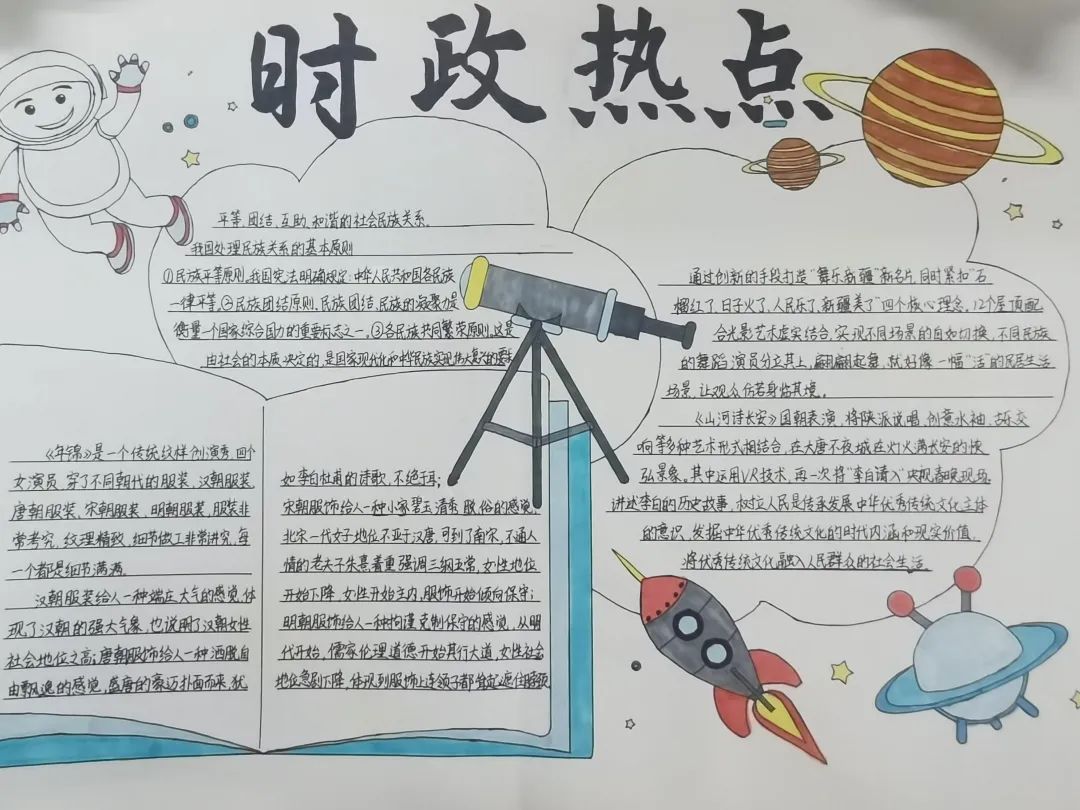 时政热点
平等,团结,互助,和谐的社会民族关系。
我国处理民族关系的基本原则
①民族平等原则。我国宪法明确规定:中华人民共和国各民族
一律平等。②民族团结原则。民族团结,民族的凝聚力是
衡量一个国家综合国力的重要标志之一。③各民族共同繁荣原则。这是
由社会的本质决定的,是国家现代化和中华民族实现伟大复兴的
《年锦》是一个传统纹样创演秀,四个
女演员,穿了不同朝代的服装,汉朝服装
唐朝服装、宋朝服装、明朝服装,服装非
常考究,纹理精致,细节做工非常讲究,每
一个都是细节满满。
汉朝服装给人一种端庄大气的感觉,体
现了汉朝的强大气象,也说明了汉朝女性
社会地位之高;唐朝服饰给人一种洒脱自
由飘逸的感觉,盛唐的豪迈扑面而来,犹
如李白杜甫的诗歌,不绝于耳;
宋朝服饰给人一种小家碧玉清秀脱俗的感觉,
北宋一代女子地位不亚于汉唐,可到了南宋,不通人
情的老夫子朱熹着重强调三纲五常,女性地位
开始下降,女性开始主内,服饰开始倾向保守;
明朝服饰给人一种拘谨克制保守的感觉,从明
代开始,儒家伦理道德开始其行大道,女性社会
地位急剧下降,体现到服饰上连领子都 遮住脖颈
通过创新的手段打造“舞乐新疆”新名片,同时紧扣“石
榴红了,日子火了,人民乐了,新疆美了”四个核心理念,12个屋顶配
合光影艺术虚实结合,实现不同场景的自如切换,不同民族
的舞蹈演员分立其上,翩翩起舞,就好像一幅“活”的民居生活
场景,让观众仿若身临其境。
《山河诗长安》国朝表演,将陕派说唱,创意水袖,古乐交
响等多种艺术形式相结合,在大唐不夜城在灯火满长安的恢
弘景象。其中运用VR技术,再一次将“李白请入”央视春晚现场。
讲述李白的历史故事,树立人民是传承发展中华优秀传统文化主体
的意识,发掘中华优秀传统文化的时代内涵和现实价值,
将优秀传统文化融入人民群众的社会生活。